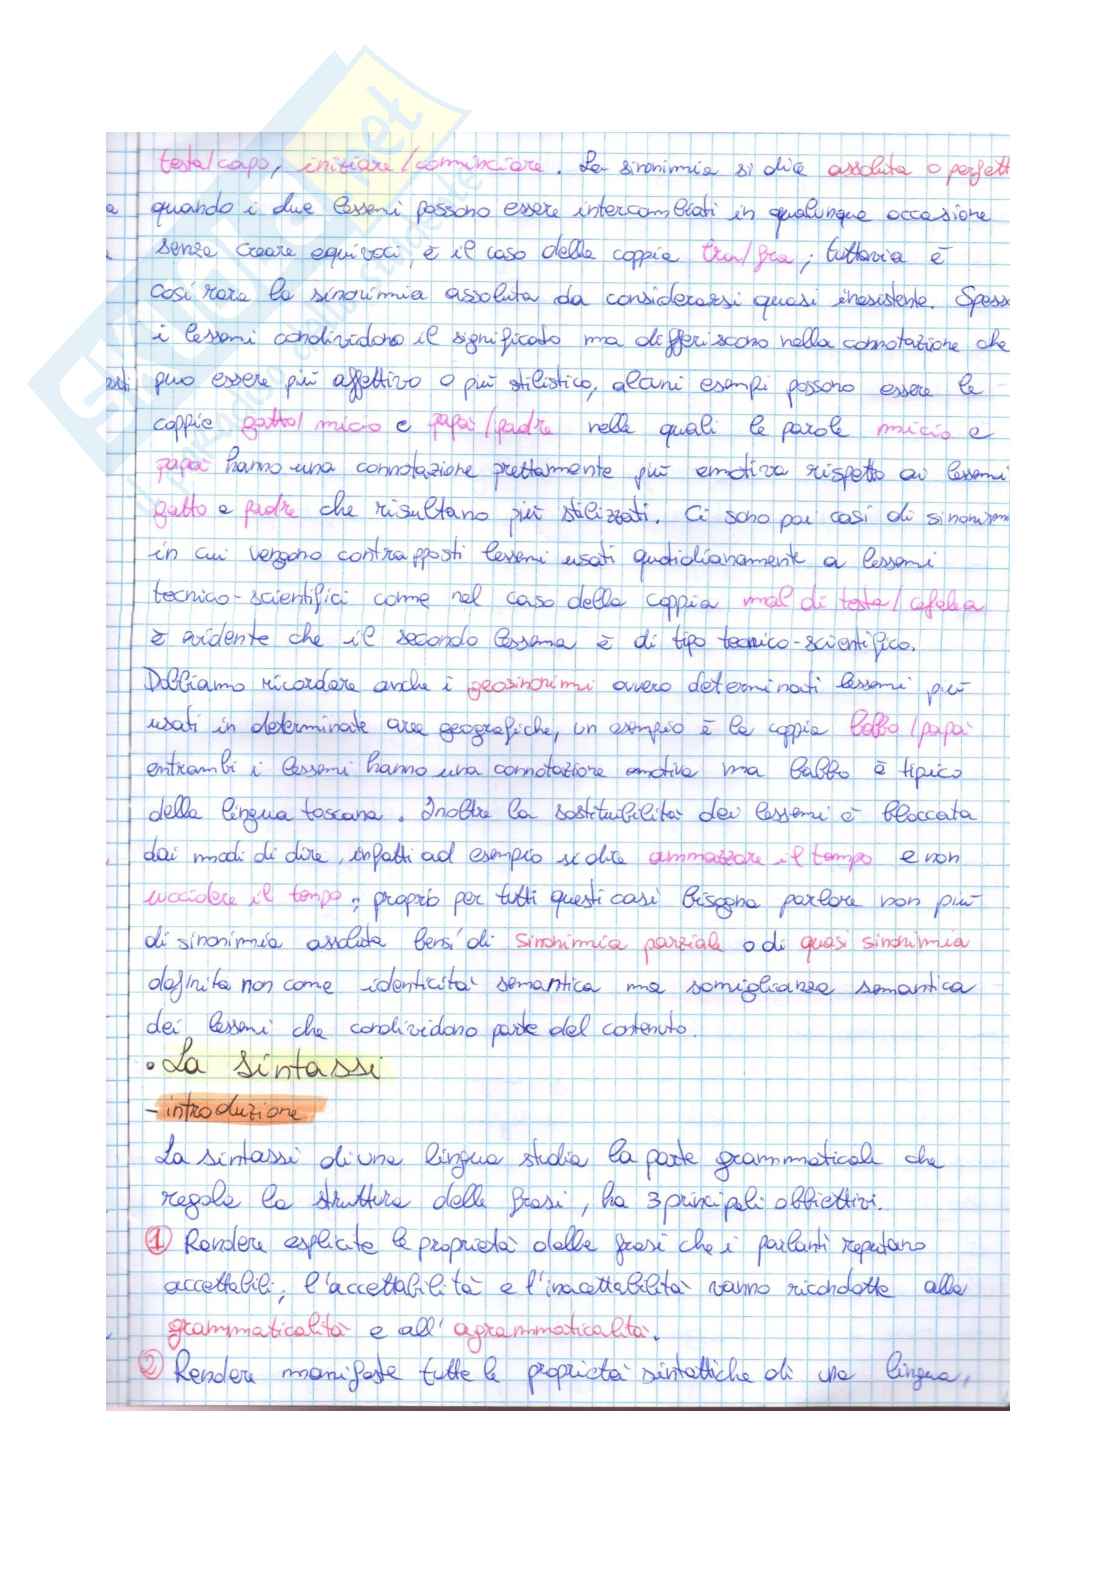 testa/capo, iniziare/cominciare. La sinonimia si dice assoluta o perfett
quando i due lessemi possono essere intercambiati in qualunque occasione
senza creare equivoci, è il caso della coppia tra/fra; tuttavia è
così rara la sinonimia assoluta da considerarsi quasi inesistente. Spess
i lessemi condividono il significato ma differiscono nella connotazione che
può essere più affettivo o più stilistico, alcuni esempi possono essere le
coppie gatto/micio e papà/padre nelle quali le parole micio e
papà hanno una connotazione prettamente più emotiva rispetto ai lessemi
gatto e padre che risultano più stilizzati. Ci sono poi casi di sinonim
in cui vengono contrapposti lessemi usati quotidianamente a lessemi
tecnico-scientifici come nel caso della coppia mal di testa/cefalea
è evidente che il secondo lessema è di tipo tecnico-scientifico.
Dobbiamo ricordare anche i geosinonimi ovvero determinati lessemi più
usati in determinate aree geografiche, un esempio è la coppia babbo/papà
entrambi i lessemi hanno una connotazione emotiva ma babbo è tipico
della lingua toscana. Inoltre la sostituibilità dei lessemi è bloccata
dai modi di dire, infatti ad esempio si dice ammazzare il tempo e non
uccidere il tempo; proprio per tutti questi casi bisogna parlare non più
di sinonimia assoluta bensì di sinonimia parziale o di quasi sinonimia
definita non come identicità semantica ma somiglianza semantica
dei lessemi che condividono parte del contenuto.
• La sintassi
- introduzione
La sintassi di una lingua studia la parte grammaticale che
regola la struttura delle frasi, ha 3 principali obbiettivi.
① Rendere esplicite le proprietà delle frasi che i parlanti reputano
accettabili, l'accettabilità e l'inaccettabilità vanno ricondotte alla
grammaticalità e all'agrammaticalità.
② Rendere manifeste tutte le proprietà sintattiche di una lingua,